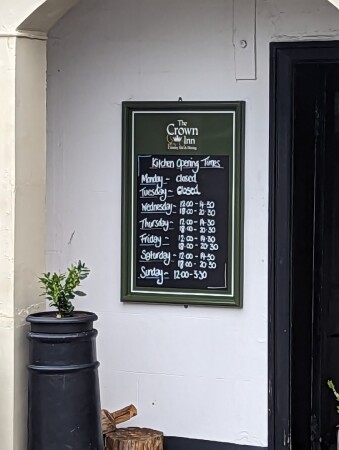 The
Crown
Inn
Country Pub & Dining
Kitchen Opening Times
Monday - Closed
Tuesday - Closed
Wednesday - 12:00 - 14:30
18:00 - 20:30
Thursday - 12:00 - 14:30
18:00 - 20:30
Friday - 12:00 - 14:30
18:00 - 20:30
Saturday - 12:00 - 14:30
18:00 - 20:30
Sunday - 12:00 - 3:30